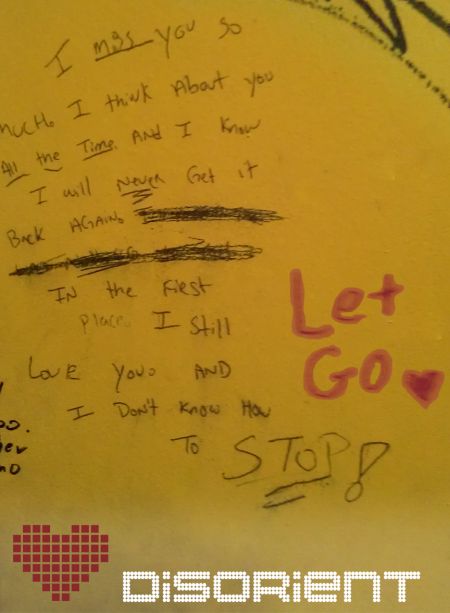 I miss you so
much. I think About you
All the Time. And I Know
I will Never Get it
Back AGAIN.
IN the FIRST
place. I Still
Love you. AND
I Don't know How
To STOP!
Let
GO
DiSORiENT